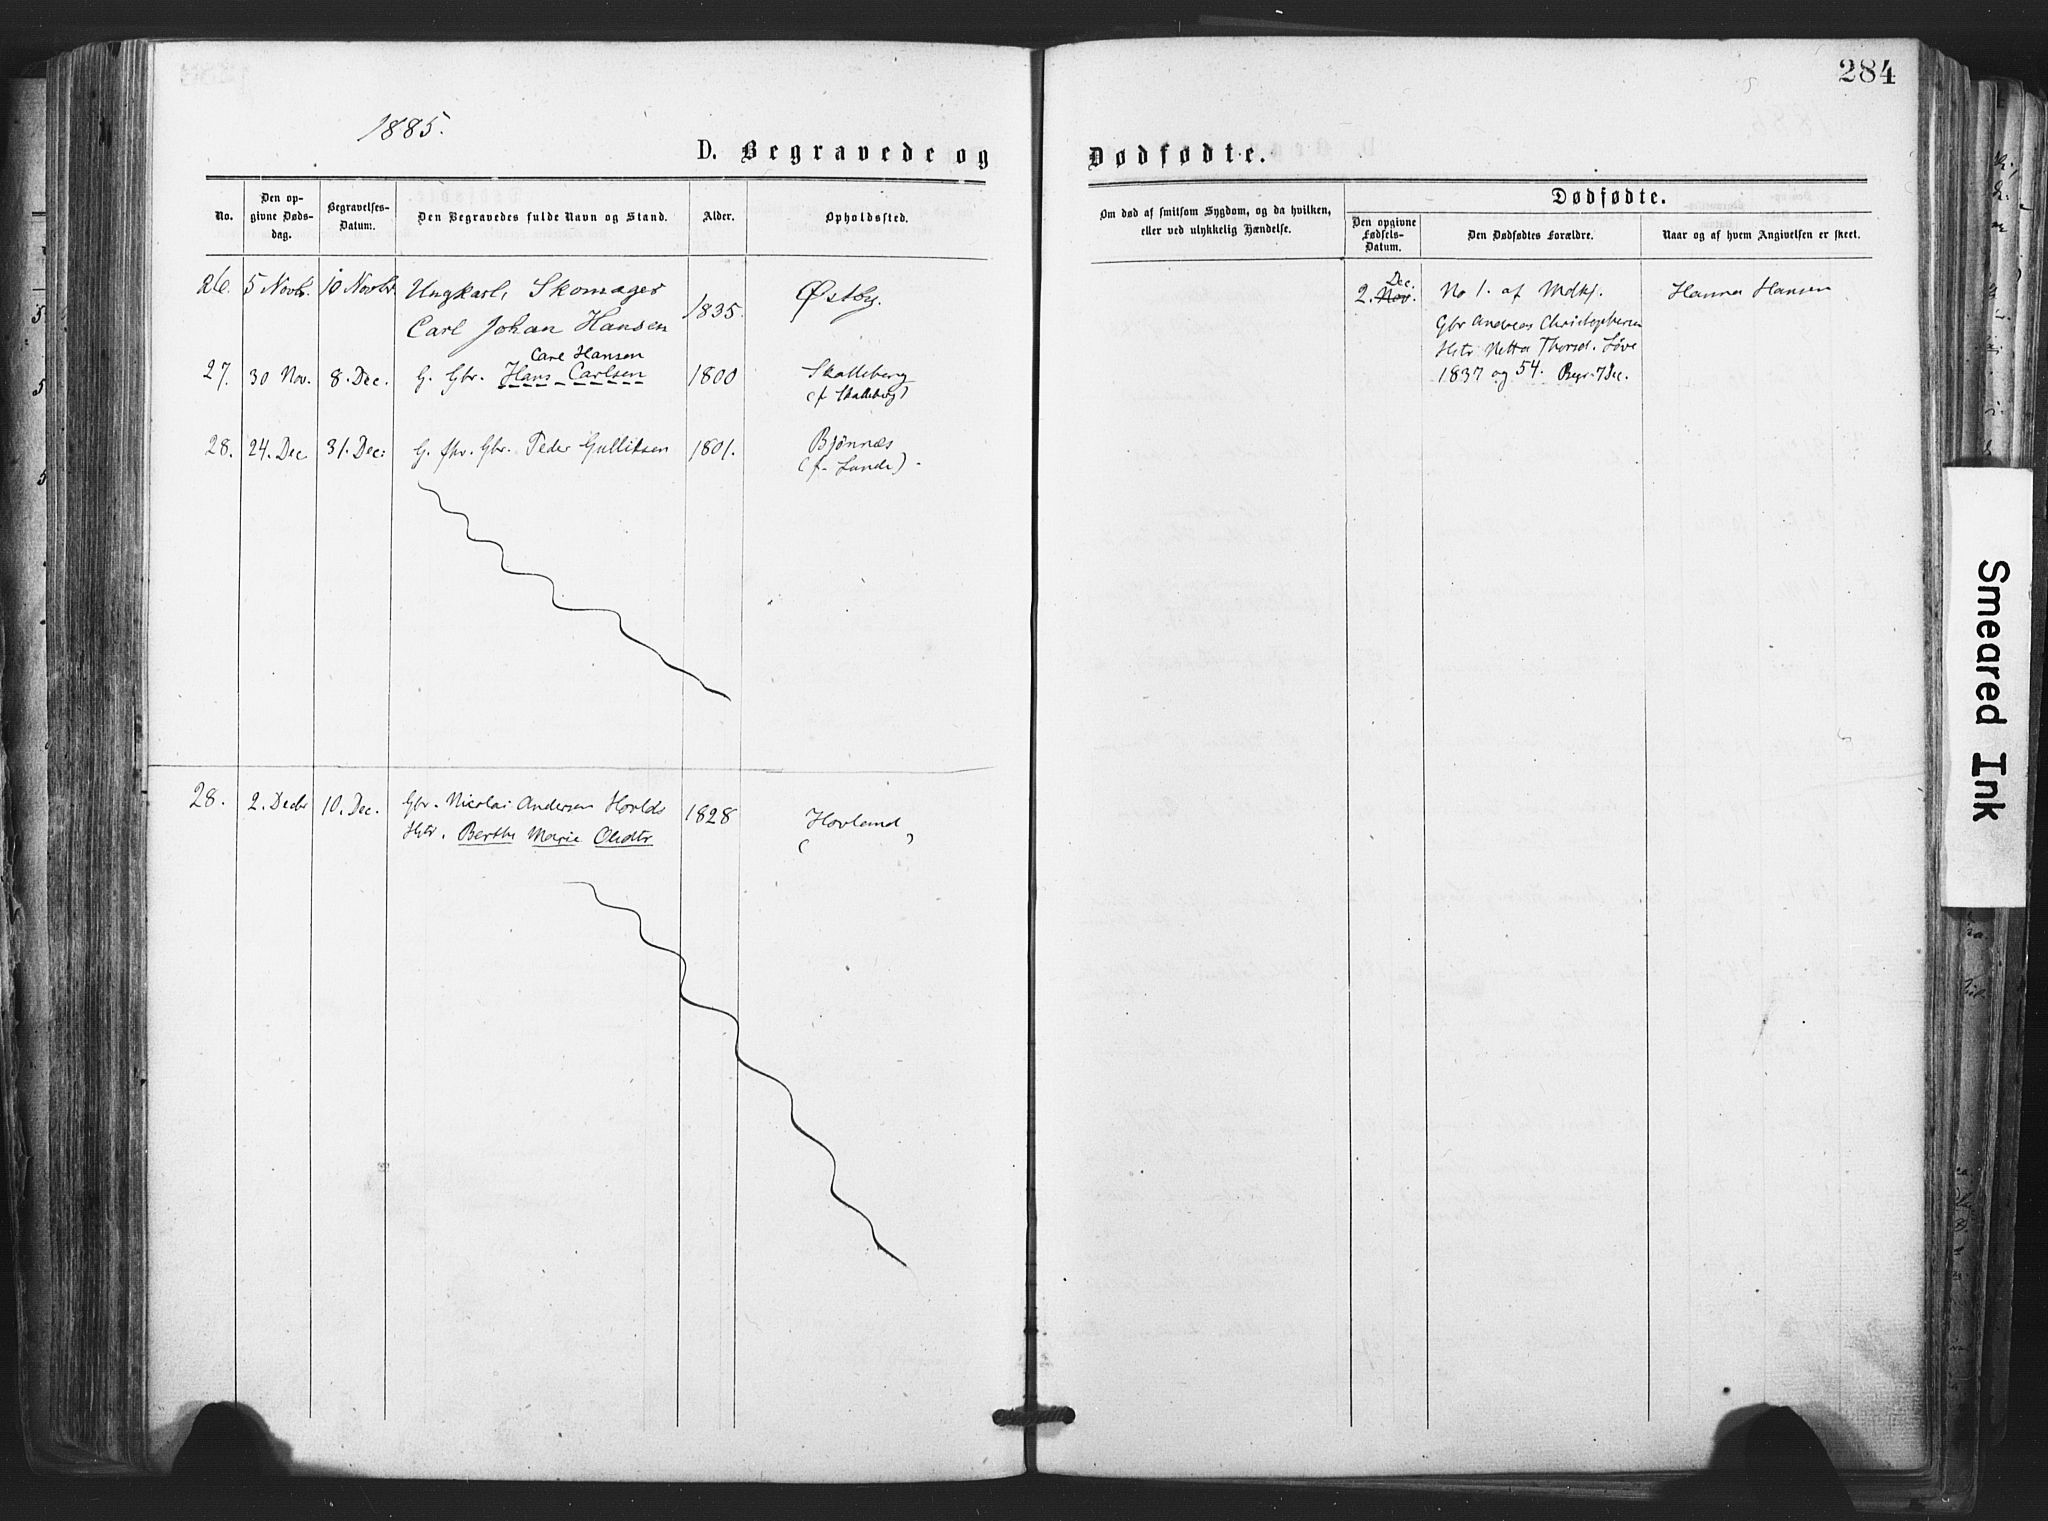 284
1885.
D. Begravede og Dødfødte.
No.
Den opgivne Dødsdag.
Begravelses-Datum.
Den Begravedes fulde Navn og Stand.
Alder.
Opholdssted.
Om død af smitsom Sygdom, og da hvilken,
eller ved ulykkelig Hændelse.
Dødfødte.
Den opgivne Fødsels-Datum.
Den Dødfødtes Forældre.
Naar og af hvem Angivelsen er skeet.
26. 5 Novbr. 10 Novbr Ungkarl, Skomager 1835. Østby.
Carl Johan Hansen
Carl Hansen
27. 30 Nov. 8. Dec. G. Gbr. Hans Carlsen 1800 Skalleberg
(f Skalleberg)
28. 24. Dec 31. Dec: G. fhv. Gbr. Peder Gulliksen 1801. Bjønnes
(f. Lunde).
28. 2. Decbr 10. Dec. Gbr. Nicolai Andersen Hovlds 1828 Hovland
Hstr. Berthe Marie Olsdtr ( )
Dec.
2. Nov. No 1. af Mdkj. Hanna Hansen
Gbr Andreas Christophersen
Hstr Netta Thorsd. Løve
1837 og 54. Begr. 7 Dec.
Smeared Ink